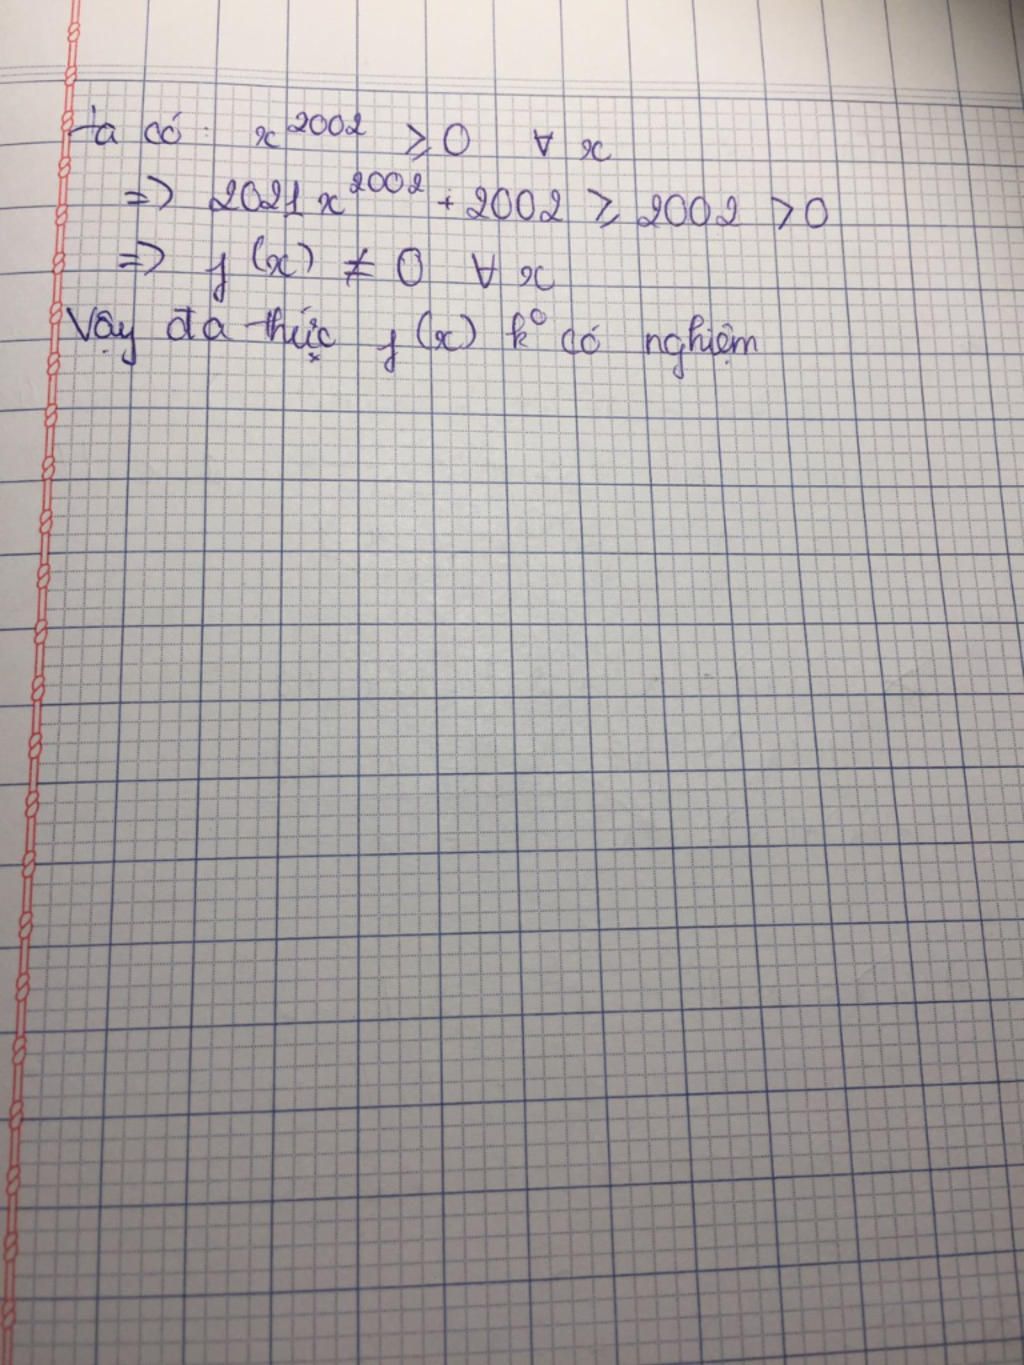 Ta có: x^2002 ≥ 0 ∀ x
=> 2021 x^2002 + 2002 ≥ 2002 > 0
=> f(x) ≠ 0 ∀ x
Vậy đa thức f(x) k° có nghiệm